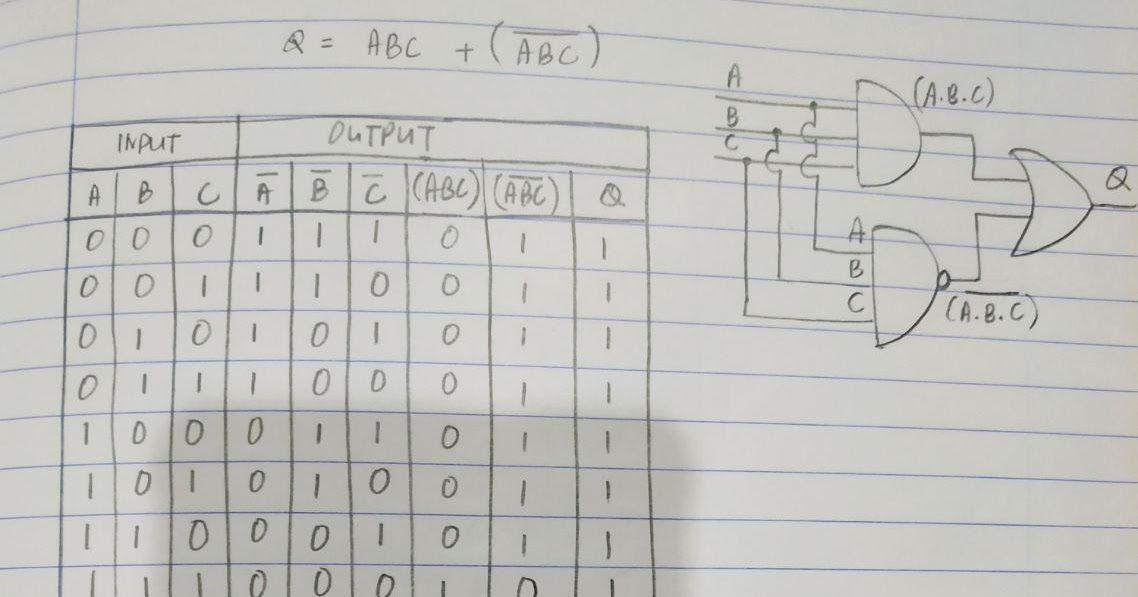 Q = ABC + (A̅B̅C̅)
A
B
C
(A.B.C)
Q
A
B
C
(A̅.̅B̅.̅C̅)
INPUT OUTPUT
A B C A̅ B̅ C̅ (ABC) (A̅B̅C̅) Q
0 0 0 1 1 1 0 1 1
0 0 1 1 1 0 0 1 1
0 1 0 1 0 1 0 1 1
0 1 1 1 0 0 0 1 1
1 0 0 0 1 1 0 1 1
1 0 1 0 1 0 0 1 1
1 1 0 0 0 1 0 1 1
1 1 1 0 0 0 1 0 1